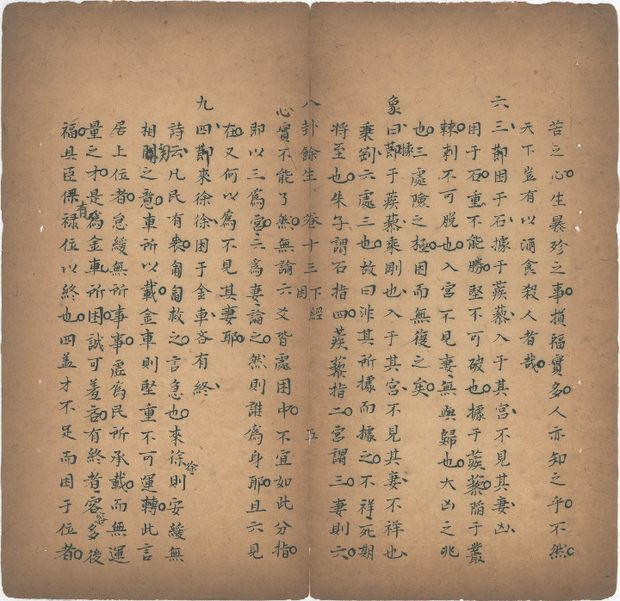 苦之心生暴殄之事損福實多人亦知之乎不然
天下豈有以酒食殺人者哉
六三節困于石據于蒺藜入于其宮不見其妻凶
困于石重不能勝堅不可破也據于蒺藜陷于叢
棘刺不可脫也入宮不見妻無與歸也大凶之兆
也三處險之極困而無援之矣
象曰節據于蒺藜乘剛也入于其宮不見其妻不祥也
乘劉六處三也故曰非其所據而據之不祥死期
將至也朱子謂石指四蒺藜指二宮謂三妻則六
八卦餘生 卷十三 下經 困
心實不能了然無論六爻皆處困中不宜如此分指
即以三為宮六為妻論之然則誰為身耶且六見
在又何以為不見其妻耶
九四節來徐徐困于金車吝有終
詩云凡民有喪匍匐救之言急也來徐徐則安緩無
相關之意車所以載金車則堅重不可運轉此言
居上位者怠緩無所事事虛為民所承載而無運
量之才是為金車所困誠可羞吝有終者容容多後
福具臣保有祿位以終也四蓋才不足而困于位者